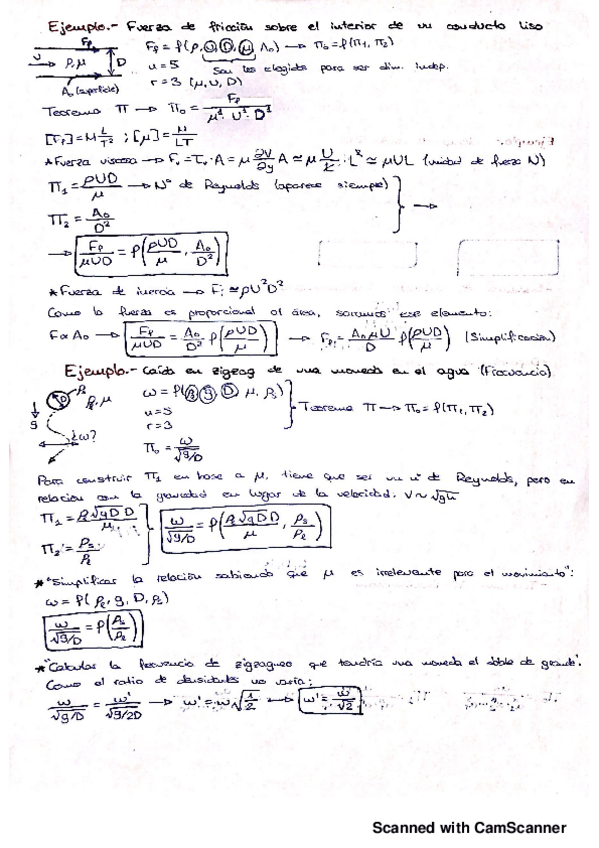 Ejemplo.- Fuerza de fricción sobre el interior de un conducto liso
Fp
U
ρ, μ
D
A₀ (superficie)
Fp = f(ρ, U, D, μ, A₀) → Π₀ = f(Π₁, Π₂)
n = 5
son los elegidos para ser dim. indep.
r = 3 (μ, U, D)
Teorema Π → Π₀ = Fp / μ¹·U¹·D¹
[Fp] = M L/T² ; [μ] = M/LT
*Fuerza viscosa → Fv = τ₀·A = μ ∂V/∂y A ≃ μ U/L · L² ≃ μUL (unidad de fuerza N)
Π₁ = ρUD/μ → Nº de Reynolds (aparece siempre)
Π₂ = A₀/D²
→ Fp/μUD = f(ρUD/μ, A₀/D²)
*Fuerza de inercia → Fi ≃ ρU²D²
Como la fuerza es proporcional al área, sacamos ese elemento:
F∝A₀ → Fp/μUD = A₀/D² f(ρUD/μ) → Fp = A₀μU/D f(ρUD/μ) (Simplificación)
Ejemplo.- Caída en zigzag de una moneda en el agua (Frecuencia)
D
ρs
ρℓ, μ
g
¿ω?
ω = f(ρℓ, g, D, μ, ρs)
n = 5
r = 3
Teorema Π → Π₀ = f(Π₁, Π₂)
Π₀ = ω/√g/D
Para construir Π₁ en base a μ, tiene que ser un nº de Reynolds, pero en
relación con la gravedad en lugar de la velocidad. V ~ √gh
Π₁ = ρℓ√gD D/μ
Π₂ = ρs/ρℓ
ω/√g/D = f(ρℓ√gD D/μ, ρs/ρℓ)
*"Simplificar la relación sabiendo que μ es irrelevante para el movimiento":
ω = f(ρℓ, g, D, ρs)
ω/√g/D = f(ρs/ρℓ)
*"Calcular la frecuencia de zigzagueo que tendría una moneda el doble de grande".
Como el ratio de densidades no varía:
ω/√g/D = ω'/√g/2D → ω' = ω√1/2 → ω' = ω/√2
Scanned with CamScanner